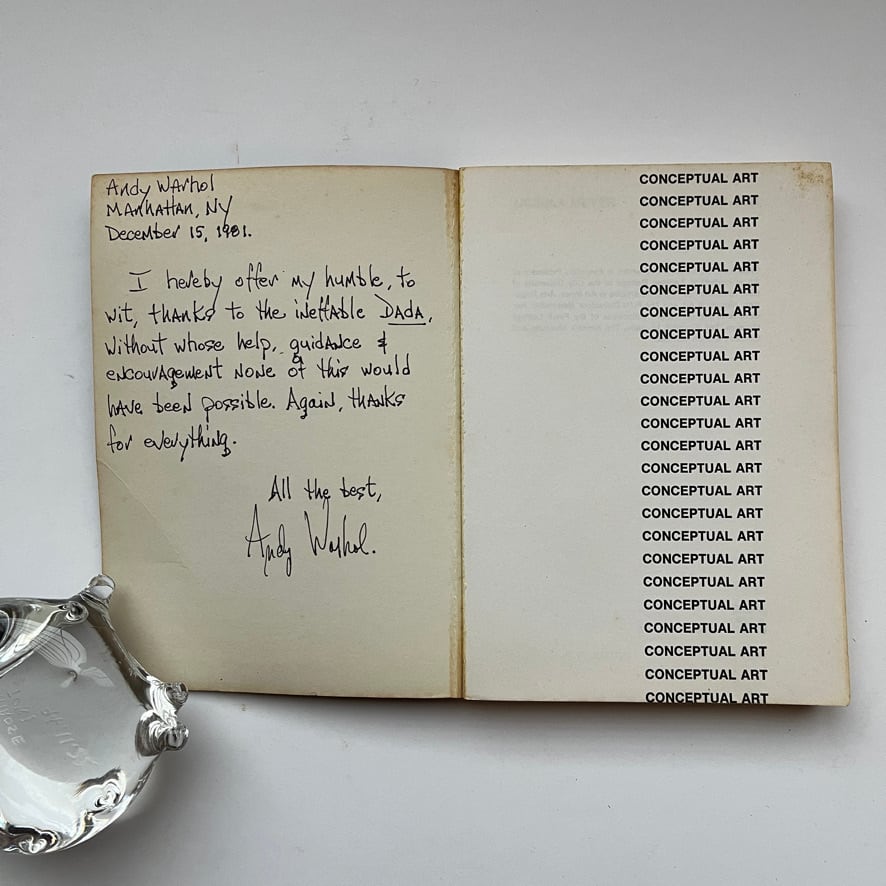 Andy Warhol
Manhattan, NY
December 15, 1981.
I hereby offer my humble, to
wit, thanks to the ineffable Dada,
without whose help, guidance &
encouragement none of this would
have been possible. Again, thanks
for everything.
All the best,
Andy Warhol.
CONCEPTUAL ART
CONCEPTUAL ART
CONCEPTUAL ART
CONCEPTUAL ART
CONCEPTUAL ART
CONCEPTUAL ART
CONCEPTUAL ART
CONCEPTUAL ART
CONCEPTUAL ART
CONCEPTUAL ART
CONCEPTUAL ART
CONCEPTUAL ART
CONCEPTUAL ART
CONCEPTUAL ART
CONCEPTUAL ART
CONCEPTUAL ART
CONCEPTUAL ART
CONCEPTUAL ART
CONCEPTUAL ART
CONCEPTUAL ART
CONCEPTUAL ART
CONCEPTUAL ART
CONCEPTUAL ART
CONCEPTUAL ART